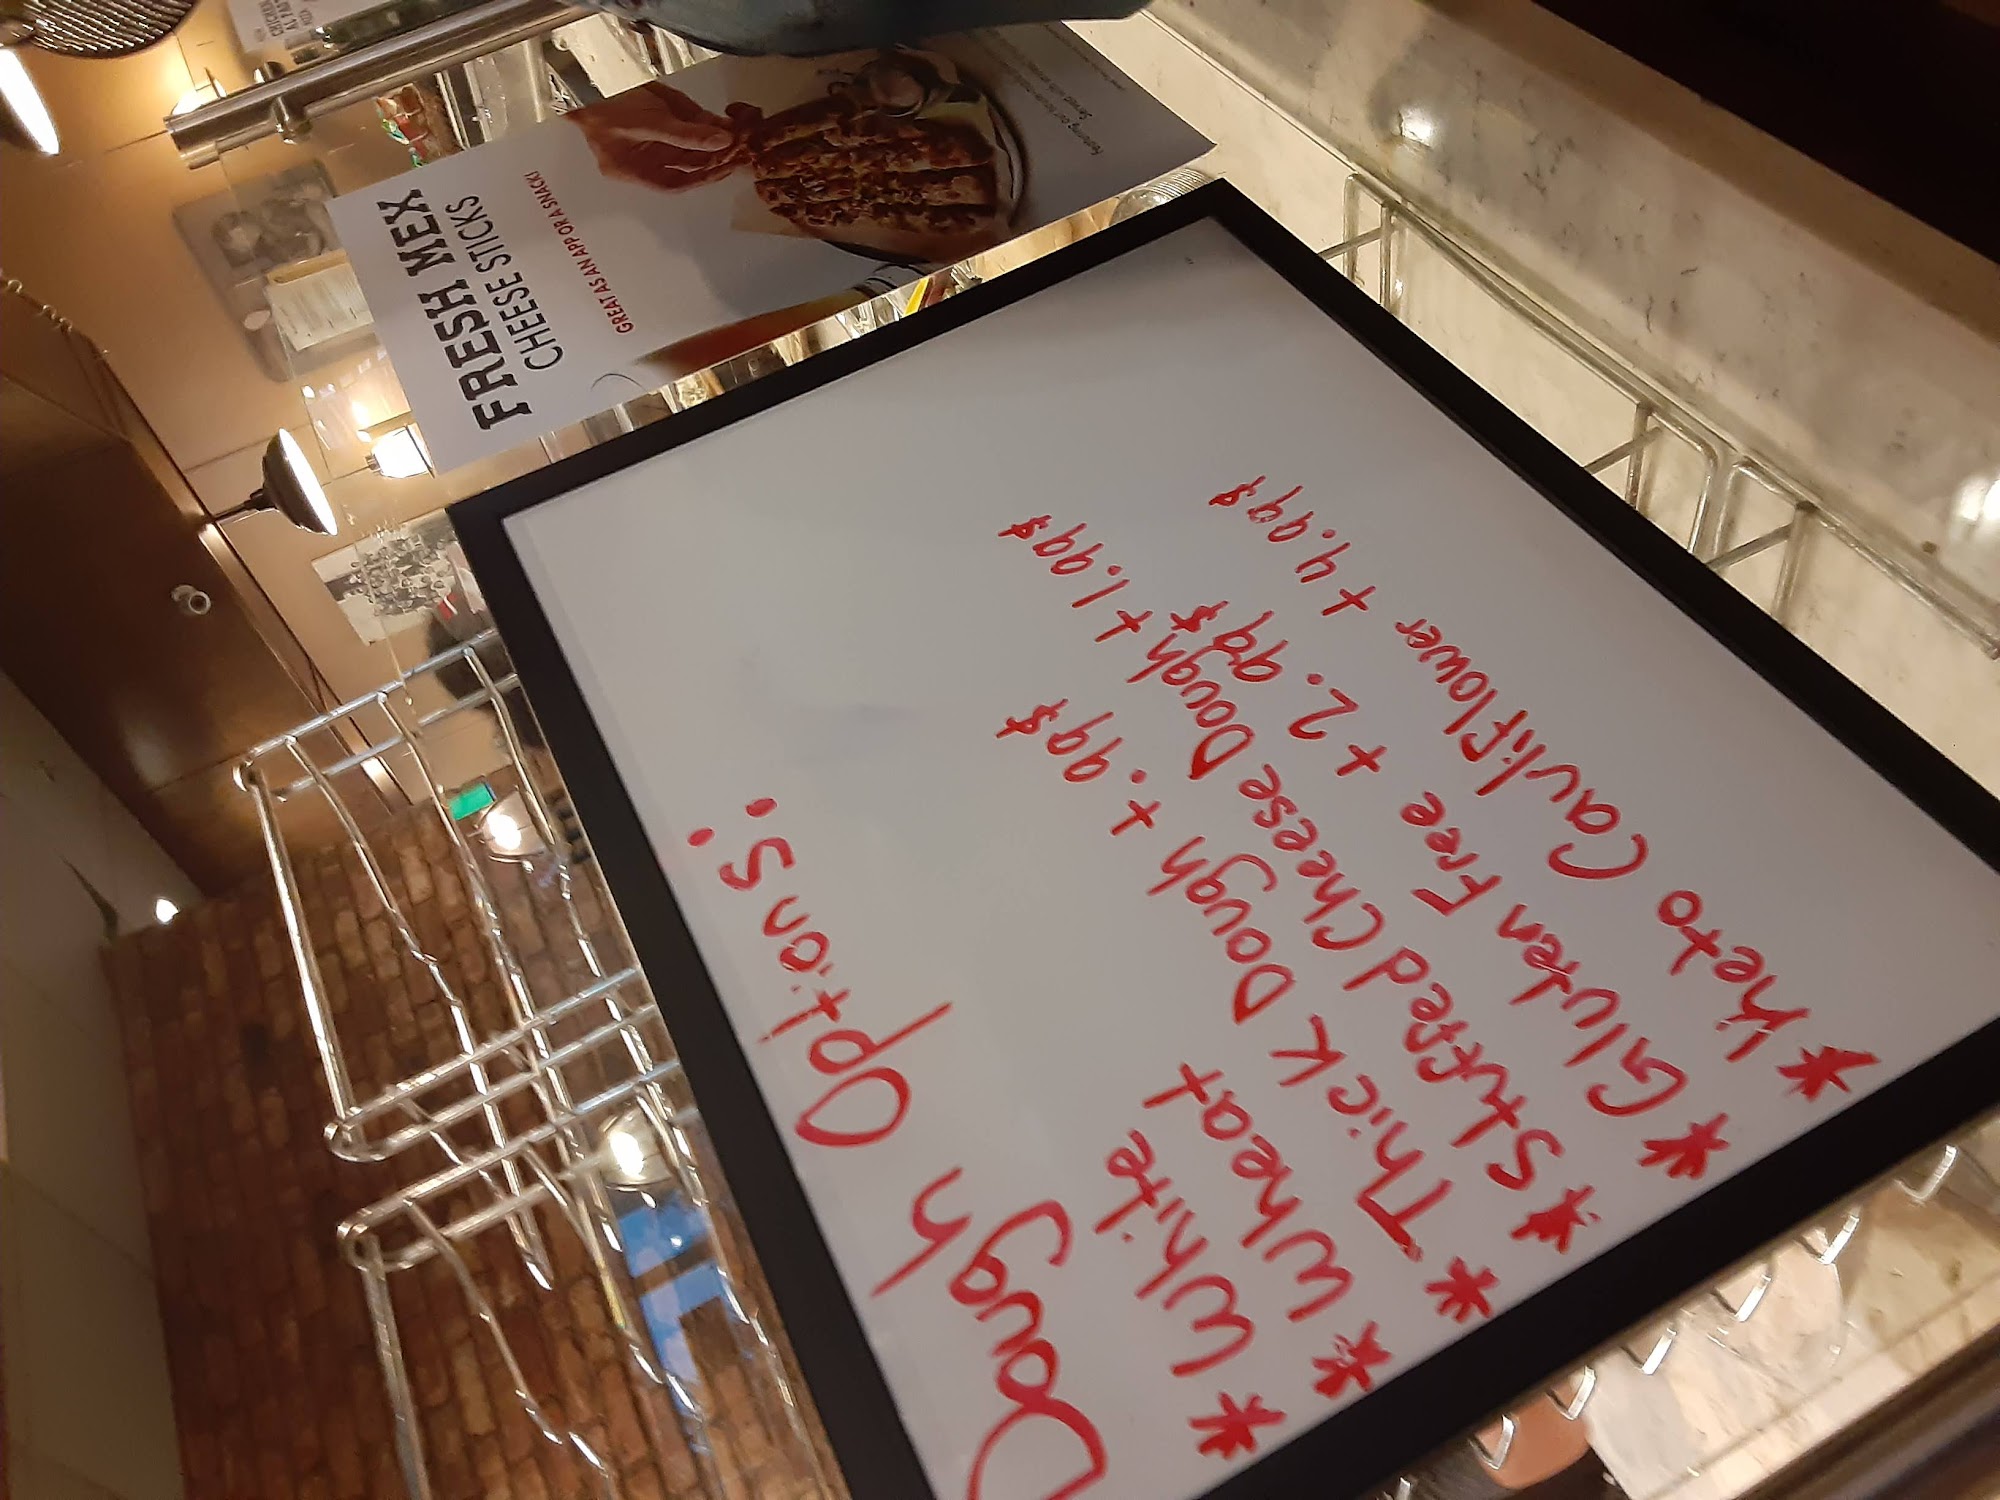 FRESH MEX
CHEESE STICKS
GREAT AS AN APP OR A SNACK!
Dough Options:
* White
* Wheat
* Thick Dough + .99$
* Stuffed Cheese Dough + 1.99$
* Gluten Free + 2.99$
* Keto Cauliflower + 4.99$